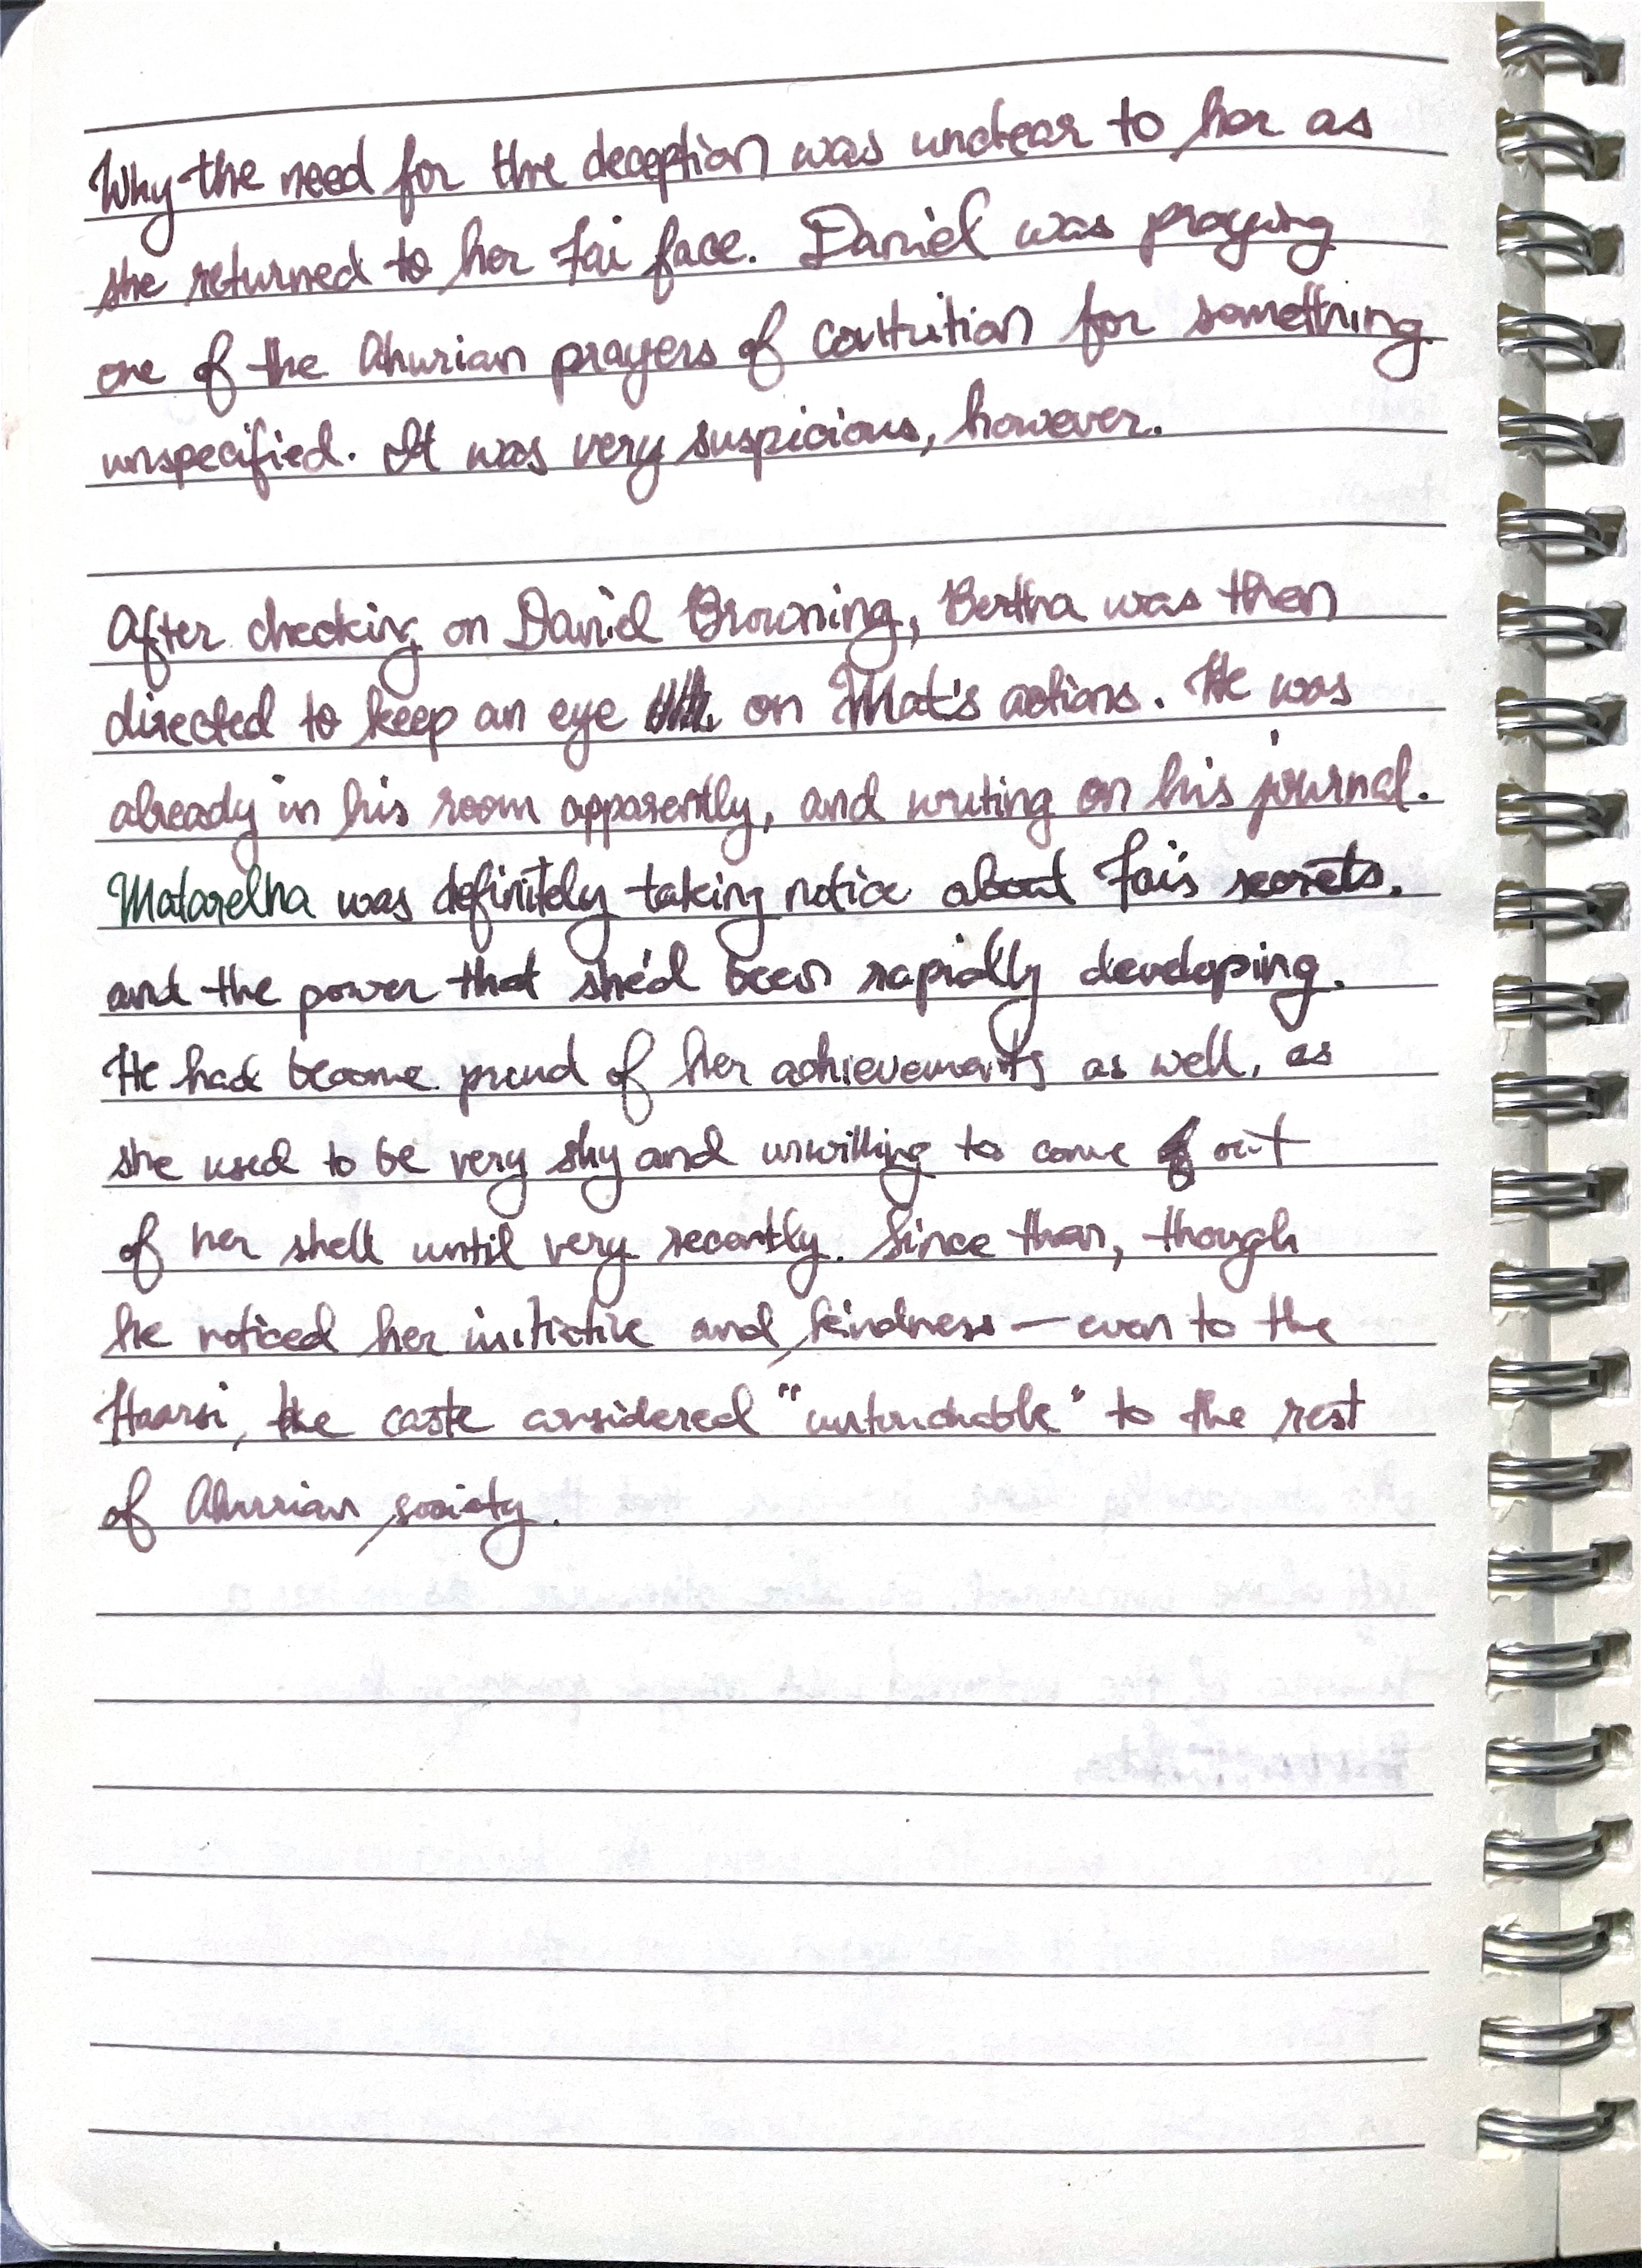 Why the need for the deception was unclear to her as
she returned to her Fai face. Daniel was praying
one of the Ahurian prayers of contrition for something
unspecified. It was very suspicious, however.
After checking on Daniel Browning, Bertha was then
directed to keep an eye on Mat's actions. He was
already in his room apparently, and writing on his journal.
Matarelha was definitely taking notice about Fai's secrets.
and the power that she'd been rapidly developing.
He had become proud of her achievements as well, as
she used to be very shy and unwilling to come out
of her shell until very recently. Since then, though
he noticed her initiative and kindness — even to the
Haarsi, the caste considered "untouchable" to the rest
of Ahurian society.